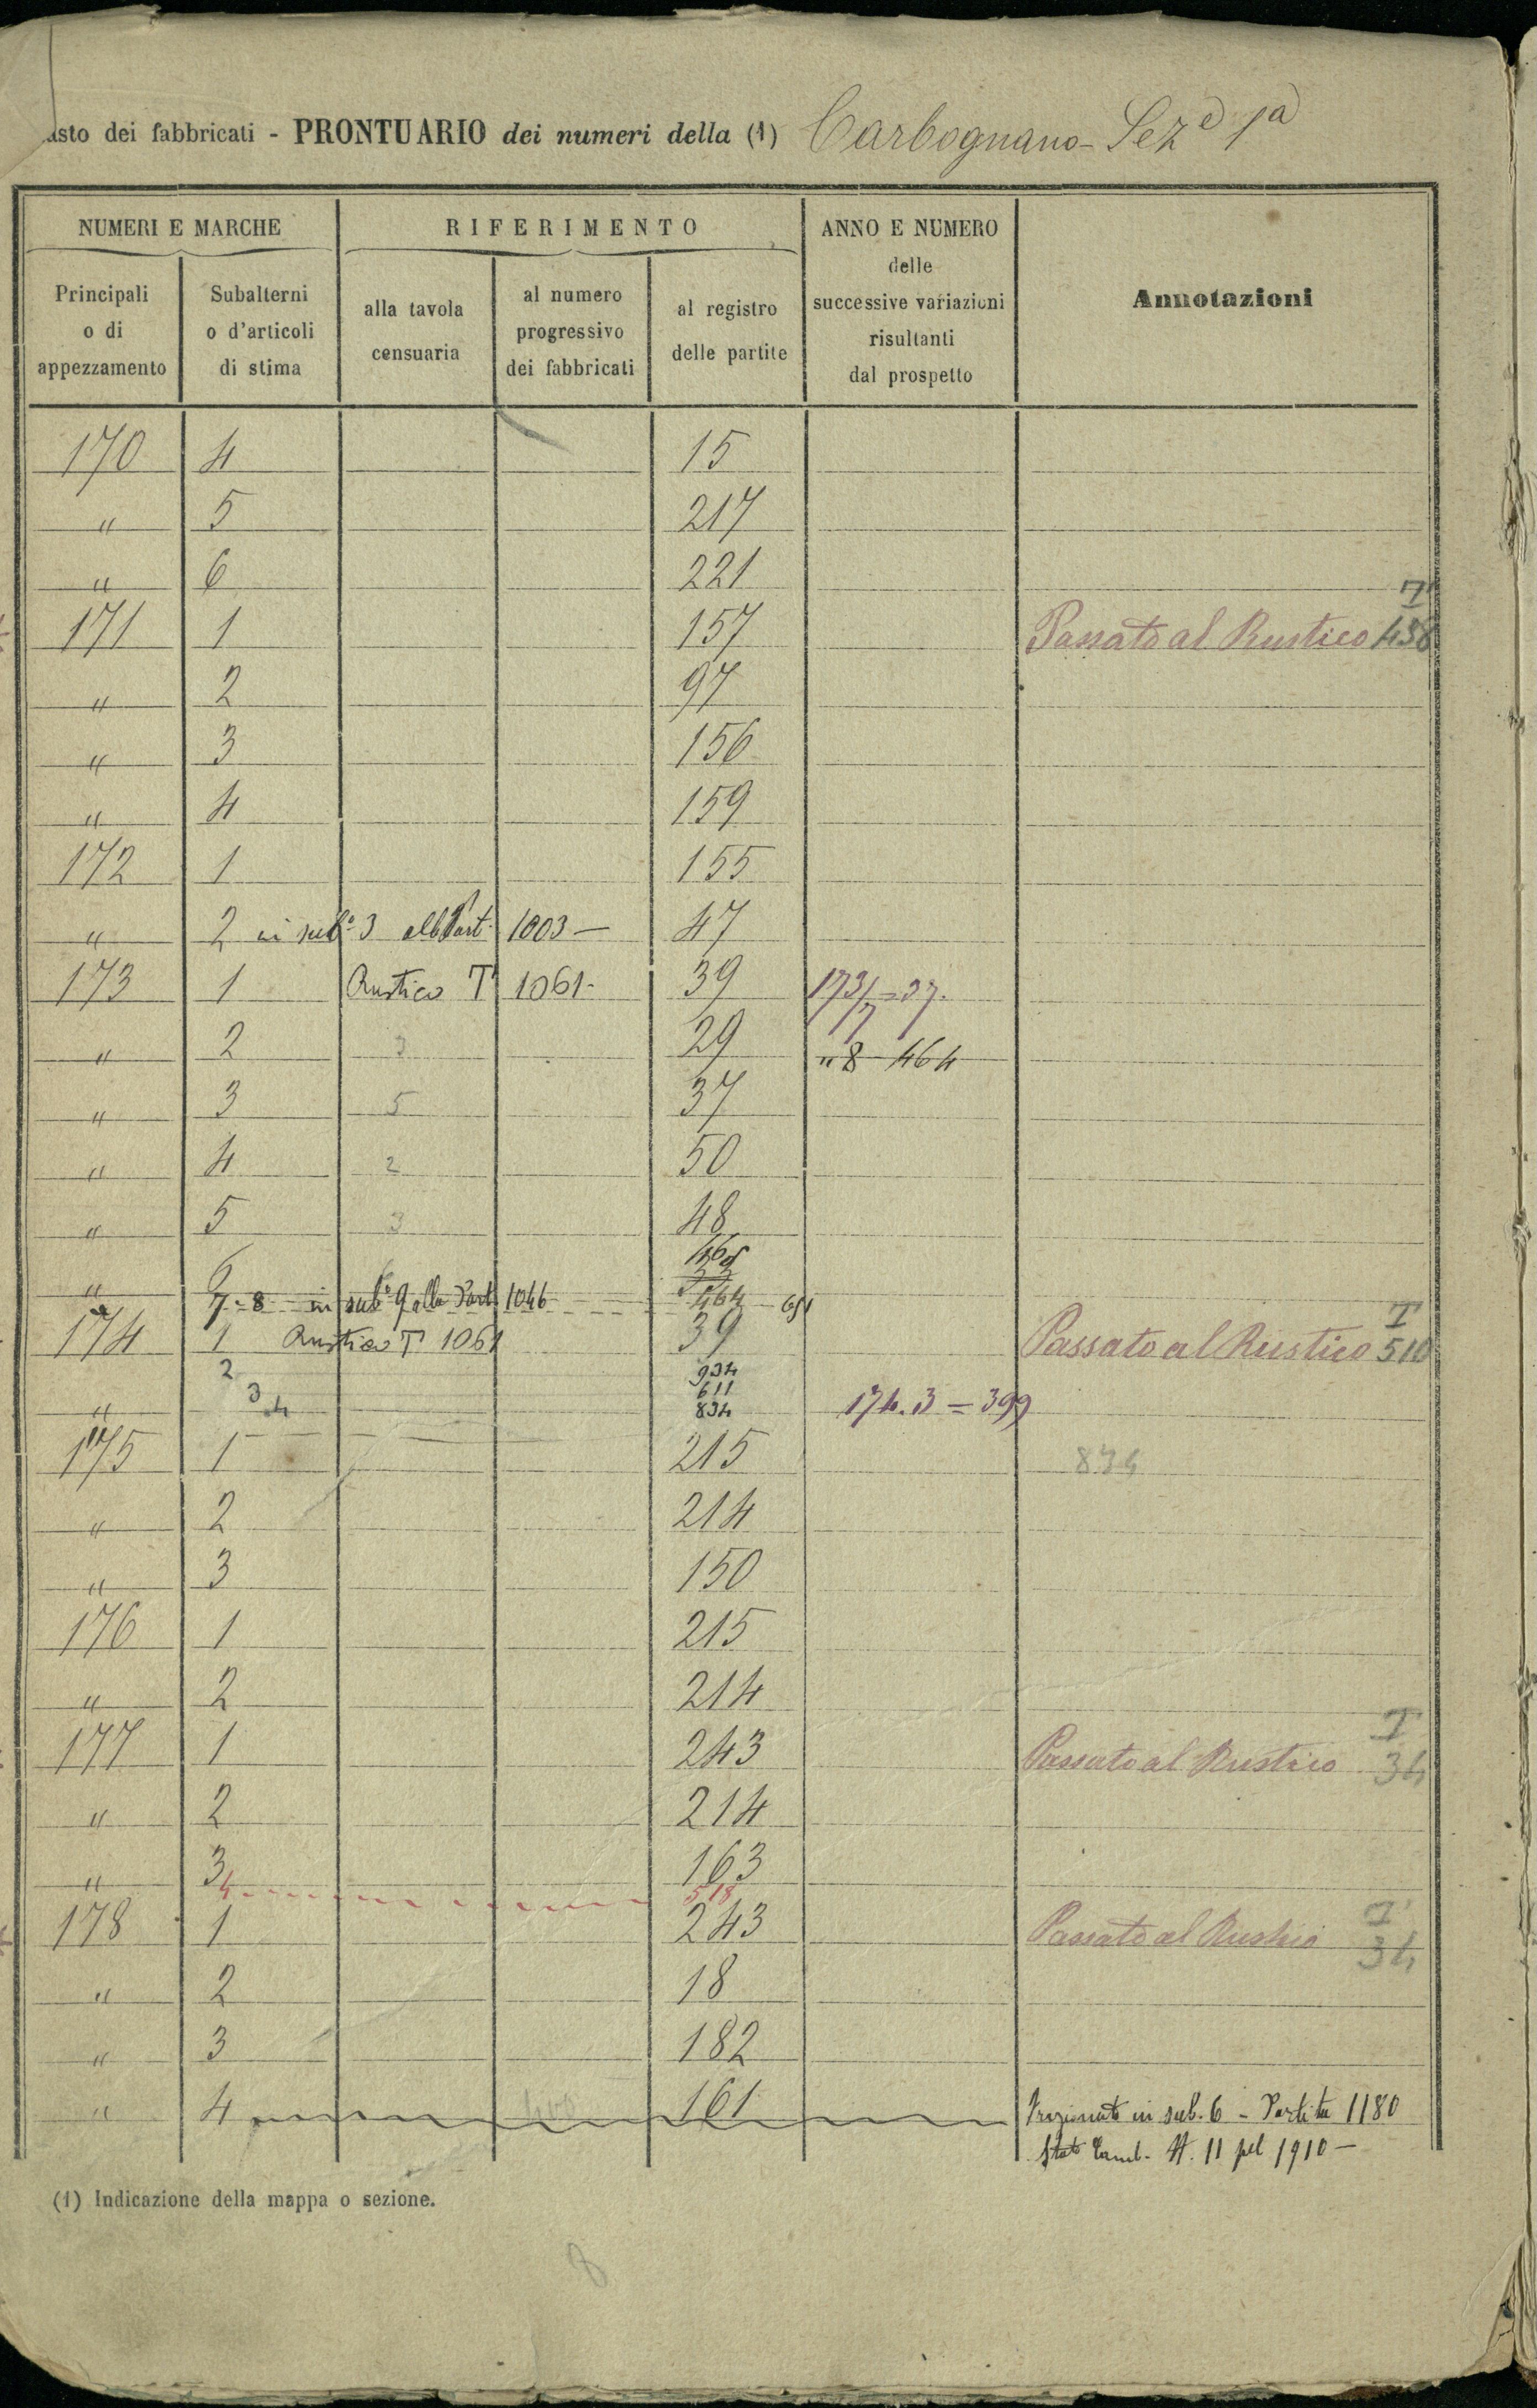 asto dei fabbricati - PRONTUARIO dei numeri della (1) Carbognano - Sez.e 1a
NUMERI E MARCHE
RIFERIMENTO
ANNO E NUMERO
delle
successive variazioni
risultanti
dal prospetto
Annotazioni
Principali
o di
appezzamento
Subalterni
o d'articoli
di stima
alla tavola
censuaria
al numero
progressivo
dei fabbricati
al registro
delle partite
170 4 15
" 5 217
" 6 221
171 1 157 Passato al Rustico T 458
" 2 97
" 3 156
" 4 159
172 1 155
" 2 in sub.o 3 alla Part. 1003 — 47
173 1 Rustico T 1061 - 39 173/7 = 37.
" 2 3 29 " 8 - 464
" 3 5 37
" 4 2 50
" 5 3 48
" 6
7 - 8 in sub.o 9 alla Part. 1046 464
174 1 Rustico T 1061 39 Passato al Rustico T 510
2 934
3 611
" 4 834 174.3 = 399
175 1 215 834
" 2 214
" 3 150
176 1 215
" 2 214
177 1 243 Passato al Rustico T 34
" 2 214
" 3 163
4 518
178 1 243 Passato al Rustico T 34
" 2 18
" 3 182
" 4 161 Frazionato in sub. 6 - Partita 1180
Stato Camb. N. 11 pel 1910 —
(1) Indicazione della mappa o sezione.
8